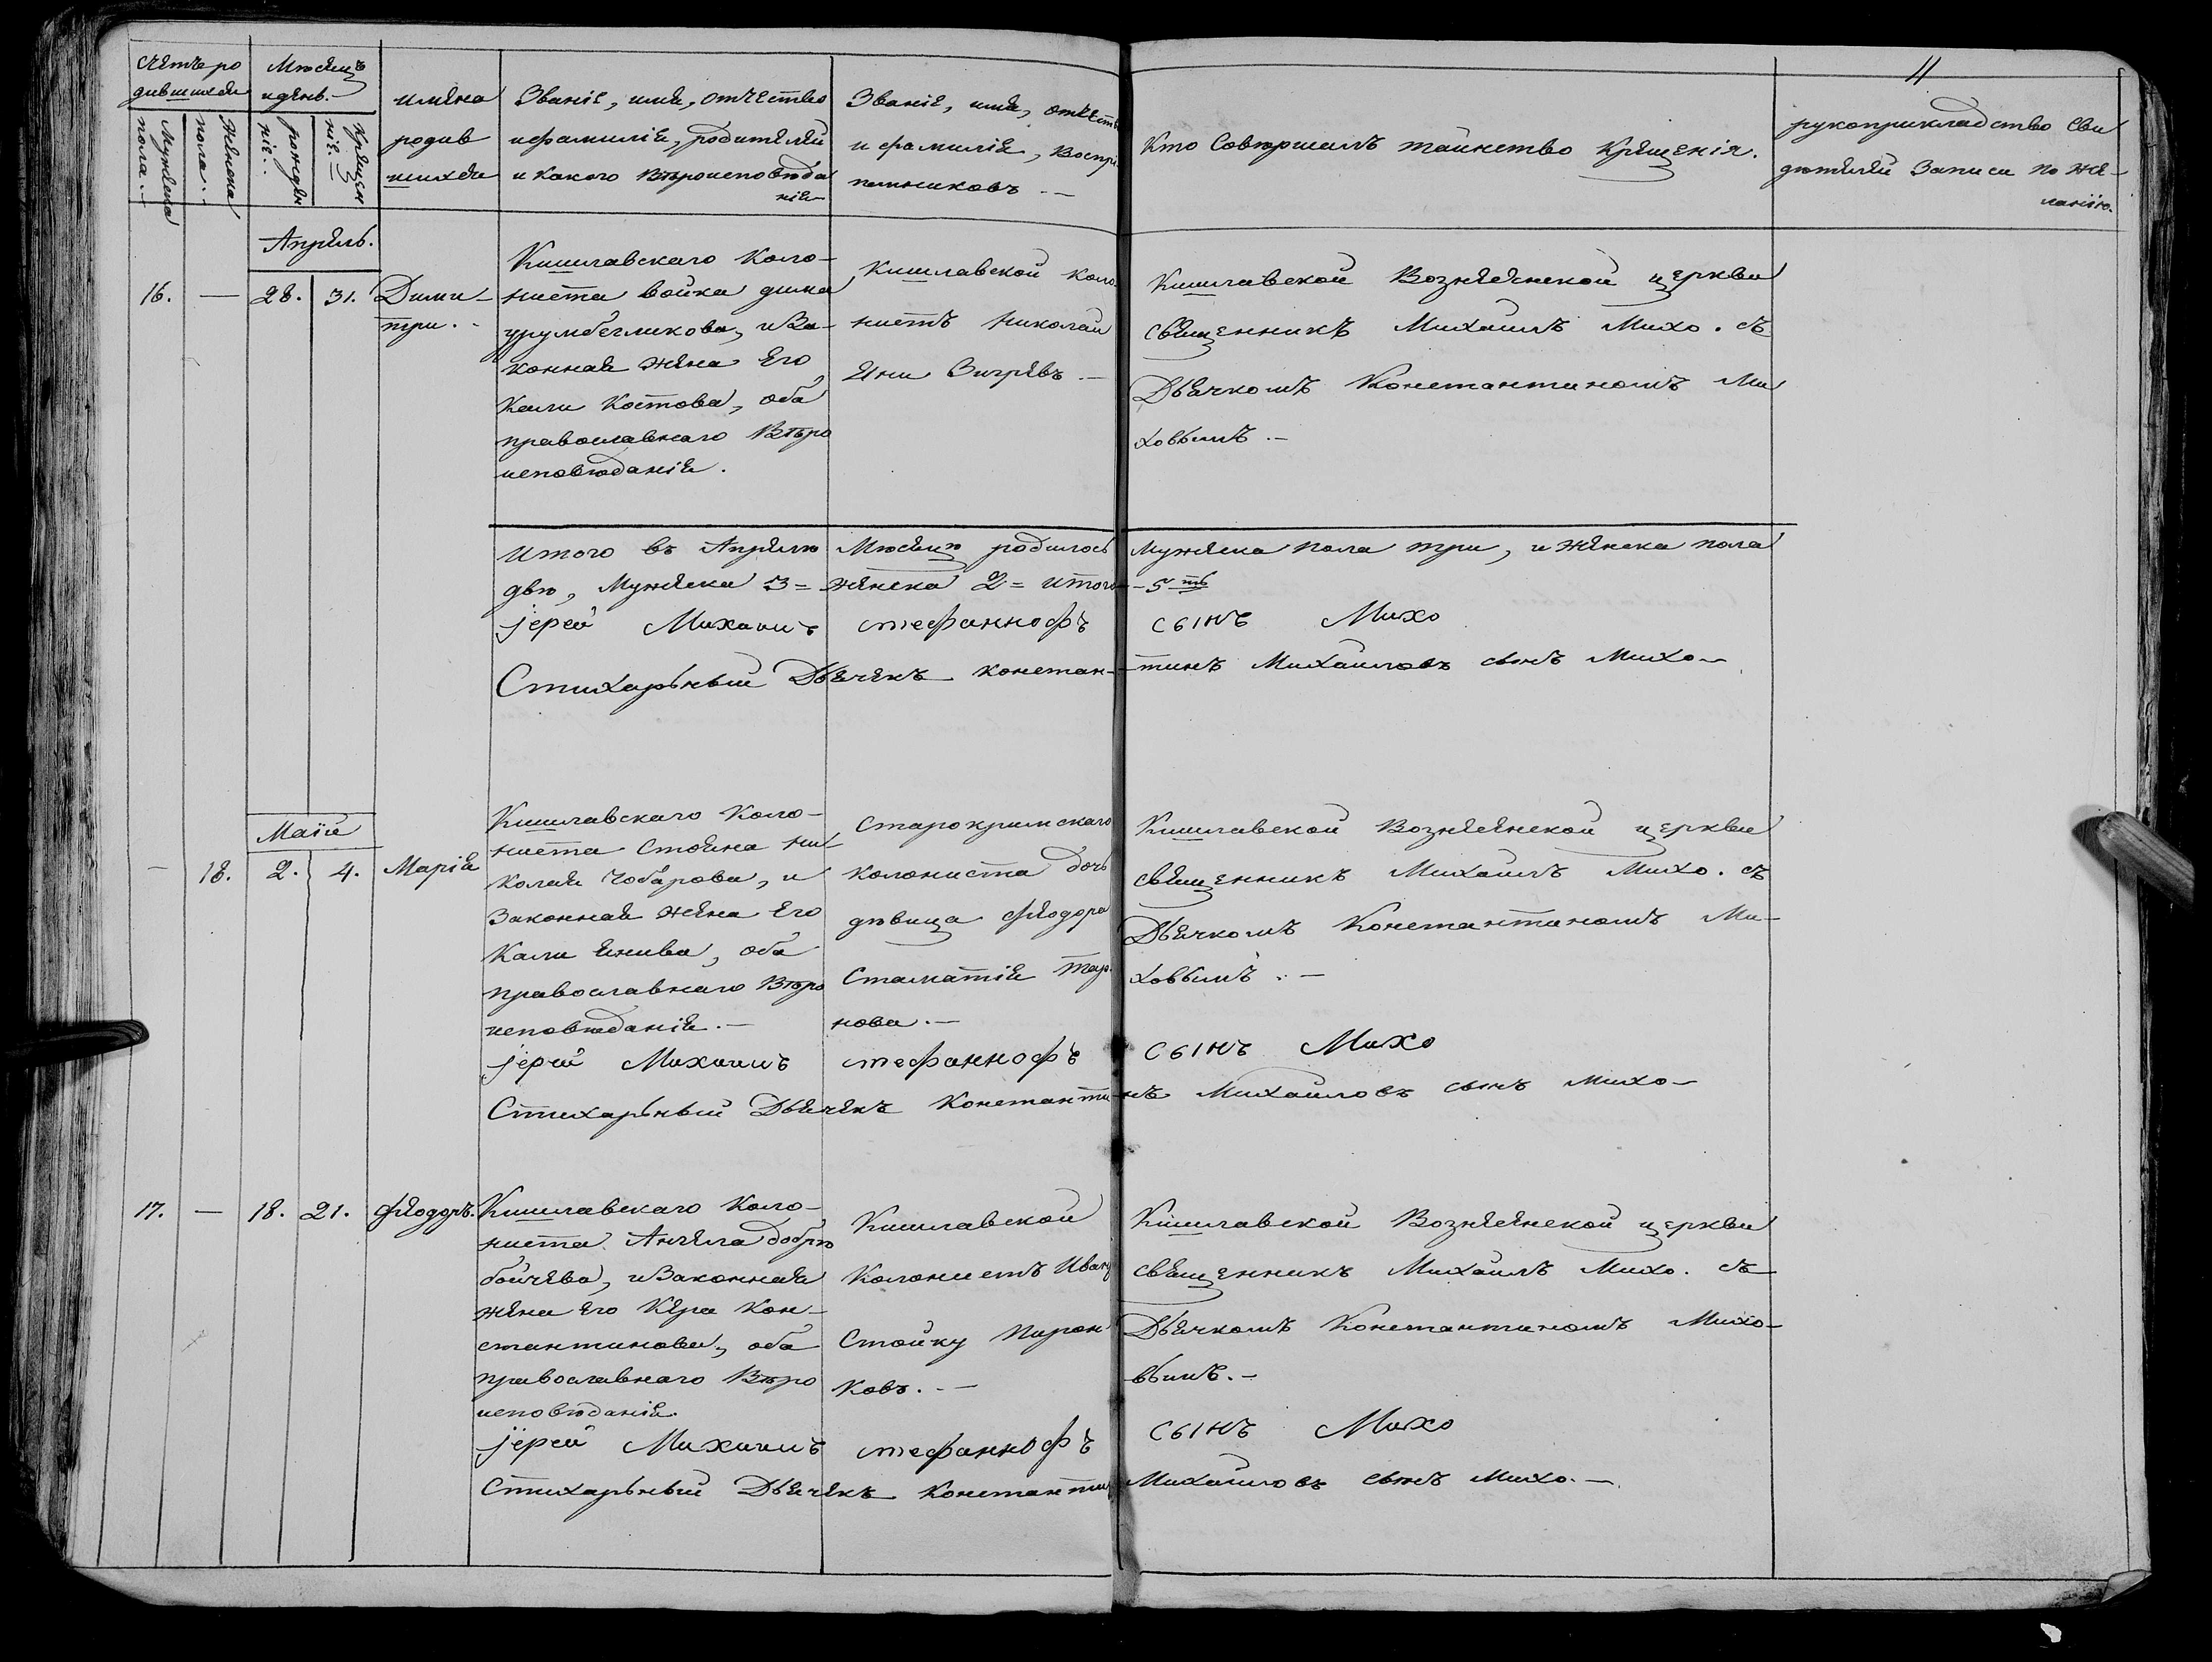 4
Счетъ ро
дившихся
Мужеска
пола.
Женска
пола.
Месяцъ
и день.
рожден
ніе.
Крещен
ніе.
имена
родив
шихся
Званіе, имя, отчество
и фамиліе, родителей
и какого Вѣроисповѣда
ніе
Званіе, имя, отчеств
и фамиліе, Воспрі
емниковъ.
Кто Совершалъ таинство Крещенія.
рукоприкладство Сви
дѣтелей Записи по же-
ланію.
Апрель.
16. — 28. 31.
Дими-
три.
Кишлавскаго Коло-
ниста Войка дима
урумбегликова, и За-
конная жена Его
Кали Костова, оба
православнаго Вѣро
исповѣданія.
Кишлавской коло-
нистъ Николай
Яни Зигревъ.
Кишлавской Вознесенской церкви
священникъ Михаилъ Михо. съ
Дьячкомъ Константиномъ Ми
ховымъ.
Итого въ Апрелѣ Мѣсяцѣ родилось Мужеска пола три, и женска пола
двѣ, Мужеска 3 = женска 2 = итого - 5ть
јерей Михаилъ стефаннофъ сынъ Михо
Стихарьный Дьячекъ констан-тинъ Михаиловъ сынъ Михо
Маїя
— 18. 2. 4. Марія
Кишлавскаго Коло-
ниста Стояна ни-
колая Чобарова, и
Законная жена Его
Кали Енива, оба
православнаго Вѣро
исповѣданія.
Старокримскаго
колониста дочь
дѣвица Феодора
Стаматія Тер-
нова.
Кишлавской Вознесенской церкви
священникъ Михаилъ Михо. съ
Дьячкомъ Константиномъ Ми-
ховымъ.
јерей Михаилъ стефаннофъ сынъ Михо
Стихарьный Дьячекъ Константи-нъ Михаиловъ сынъ Михо
17. — 18. 21. Феодоръ.
Кишлавскаго Коло-
ниста Ангела добрѣ
бойчева, и Законная
жена Его Кера Кон-
стантинова, оба
православнаго Вѣро
исповѣданія
Кишлавской
Колонистъ Иванъ
Стойку Парон
ковъ.
Кишлавской Вознесенской церкви
священникъ Михаилъ Михо. съ
Дьячкомъ Константиномъ Михо-
вымъ.
јерей Михаилъ стефаннофъ сынъ Михо
Стихарьный Дьячекъ Константинъ Михаиловъ сынъ Михо.